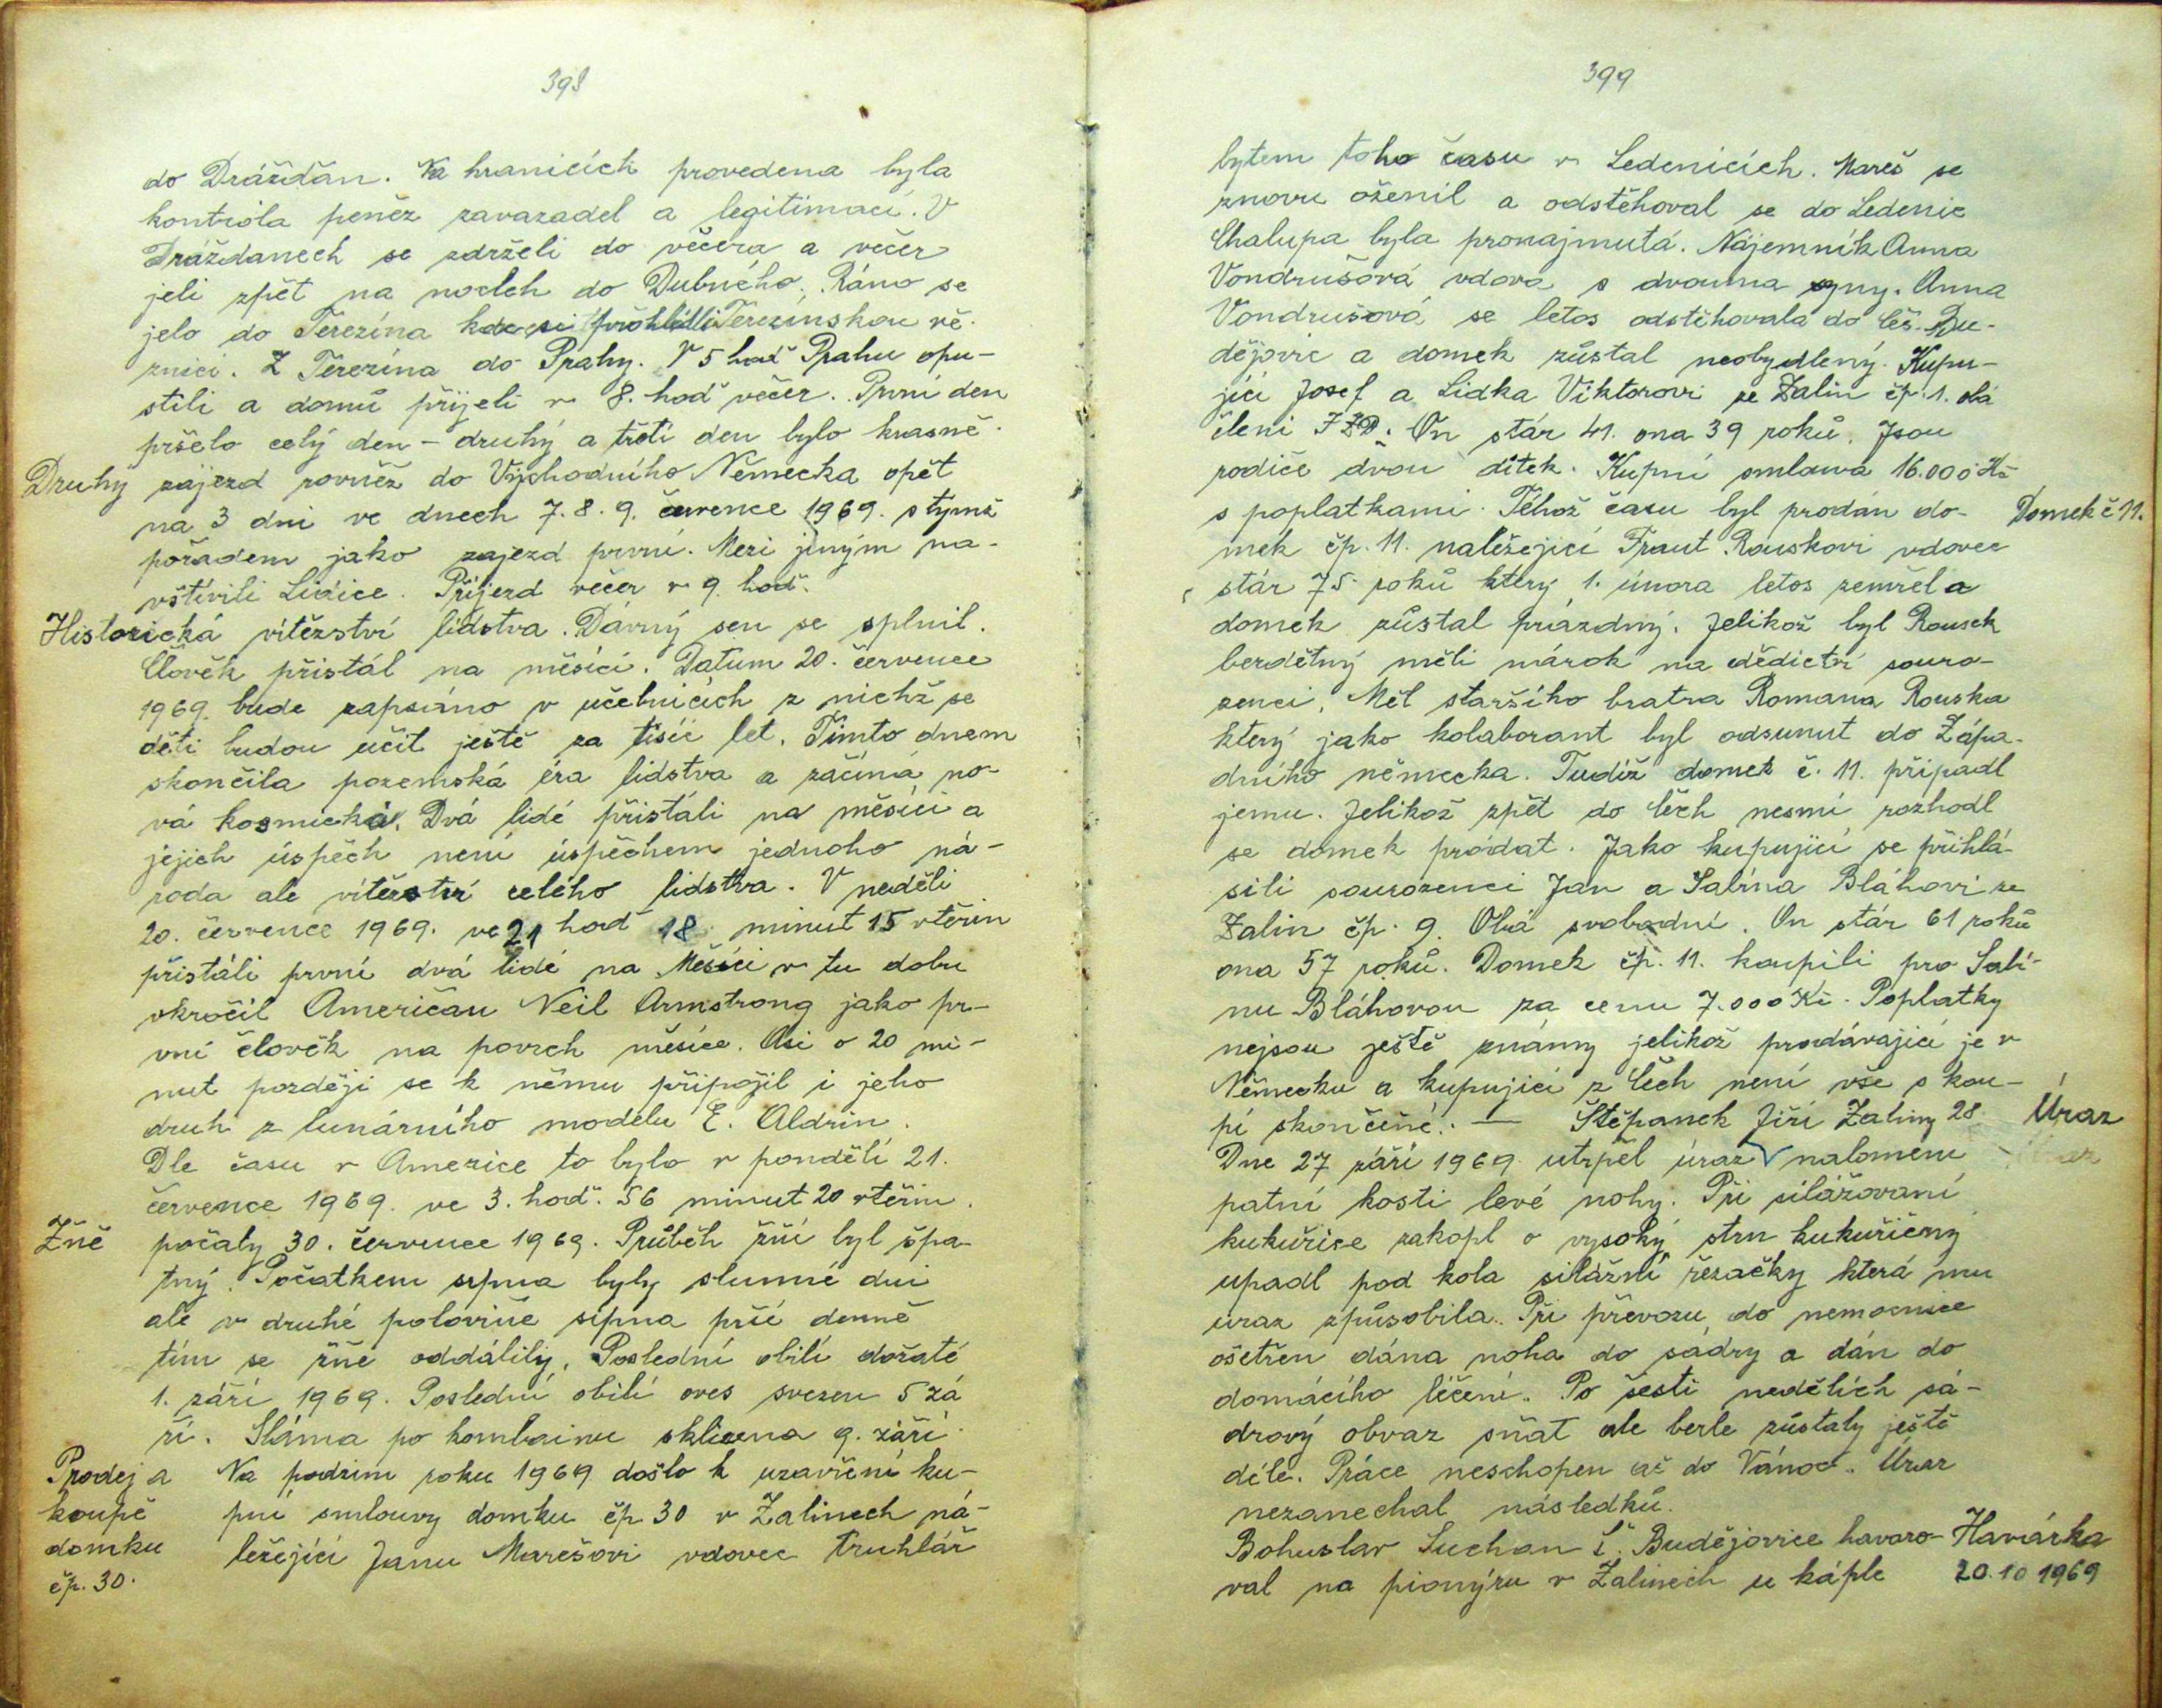 398
do Drážďan. Na hranicích provedena byla
kontrola peněz zavazadel a legitimací. V
Drážďanech se zdrželi do večera a večer
jeli zpět na nocleh do Dubného. Ráno se
jelo do Terezína kde si prohlédli Terezínskou vě-
znici. Z Terezína do Prahy. V 5 hod Prahu opu-
stili a domů přijeli v 8. hod večer. První den
pršelo celý den – druhý a třetí den bylo krasně.
Druhý zájezd rovněž do Východního Německa opět
na 3 dni ve dnech 7. 8. 9. července 1969. s týmž
pořadem jako zajezd první. Mezi jiným na-
vštívili Lidice. Příjezd večer v 9. hod.
Historická vítězství lidstva. Dávný sen se splnil.
Člověk přistál na měsíci. Datum 20. července
1969. bude zapsáno v učebnicích z nichž se
děti budou učit ještě za tisíc let. Tímto dnem
skončila pozemská éra lidstva a začíná no-
vá kosmická. Dvá lidé přistáli na měsíci a
jejich úspěch není úspěchem jednoho ná-
roda ale vítězství celého lidstva. V neděli
20. července 1969. ve 21 hod 18 minut 15 vteřin
přistáli první dvá lidé na Měsíci v tu dobu
vkročil Američan Neil Armstrong jako pr-
vní člověk na povrch měsíce. Asi o 20 mi-
nut později se k němu připojil i jeho
druh z lunárního modelu E. Aldrin.
Dle času v Americe to bylo v pondělí 21.
července 1969. ve 3. hod. 56 minut 20 vteřin.
Žně počaly 30. července 1969. Průběh žní byl špa-
tný. Počatkem srpna byly slunné dni
ale v druhé polovině srpna prší denně
tím se žně oddálily. Poslední obilí dožaté
1. září 1969. Poslední obilí oves svezen 5 zá
ří. Sláma po kombainu sklizena 9. září.
Prodej a Na podzim roku 1969 došlo k uzavření ku-
koupě pní smlouvy domku čp. 30 v Zalinech ná-
domku ležející Janu Marešovi vdovec truhlář
čp. 30.
399
bytem toho času v Ledenicích. Mareš se
znovu oženil a odstěhoval se do Ledenic
Chalupa byla pronajmutá. Nájemník Anna
Vondrušová vdova s dvouma syny. Anna
Vondrušová se letos odstěhovala do Čes. Bu-
dějovic a domek zůstal neobydlený. Kupu-
jící Josef a Lidka Viktorovi ze Zalin čp. 1. obá
členi JZD. On stár 41. ona 39 roků. Jsou
rodiče dvou dítek. Kupní smlouva 16.000 Kč
s poplatkami. Téhož času byl prodán do- Domek č 11.
mek čp. 11. naležející Frant. Rouskovi vdovec
stár 75 roků který 1. února letos zemřel a
domek zůstal prázdný. Jelikož byl Rousek
bezdětný měli nárok na dědictví souro-
zenci. Měl staršího bratra Romana Rouska
který jako kolaborant byl odsunut do Zápa-
dního německa. Tudíž domek č. 11. připadl
jemu. Jelikož zpět do Čech nesmí rozhodl
se domek prodat. Jako kupující se přihlá-
sili sourozenci Jan a Salina Bláhovi ze
Zalin čp. 9. Obá svobodní. On stár 61 roků
ona 57 roků. Domek čp. 11. koupili pro Sali-
nu Bláhovou za cenu 7.000 Kč. Poplatky
nejsou ještě známy jelikož prodávající je v
Německu a kupující z Čech není vše s kou-
pí skončené. — Štěpanek Jiří Zaliny 28 Úraz
Dne 27 září 1969 utrpěl úraz nalomení
patní kosti levé nohy. Při silážovaní
kukuřice zakopl o vysoký strn kukuřičný
upadl pod kola silážní řezačky která mu
úraz způsobila. Při převozu do nemocnice
ošetřen dána noha do sádry a dán do
domácího léčení. Po šesti nedělích sá-
drový obvaz sňat ale berle zůstaly ještě
déle. Práce neschopen až do Vánoc. Úraz
nezanechal následků.
Bohuslav Suchan Č. Budějovice havaro- Havárka
val na pionýru v Zalinech u káple 20.10 1969